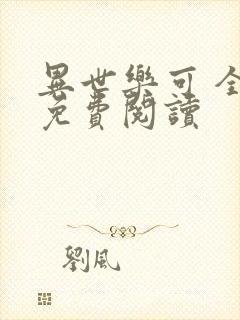 異世樂可全
免費閱讀
劉風